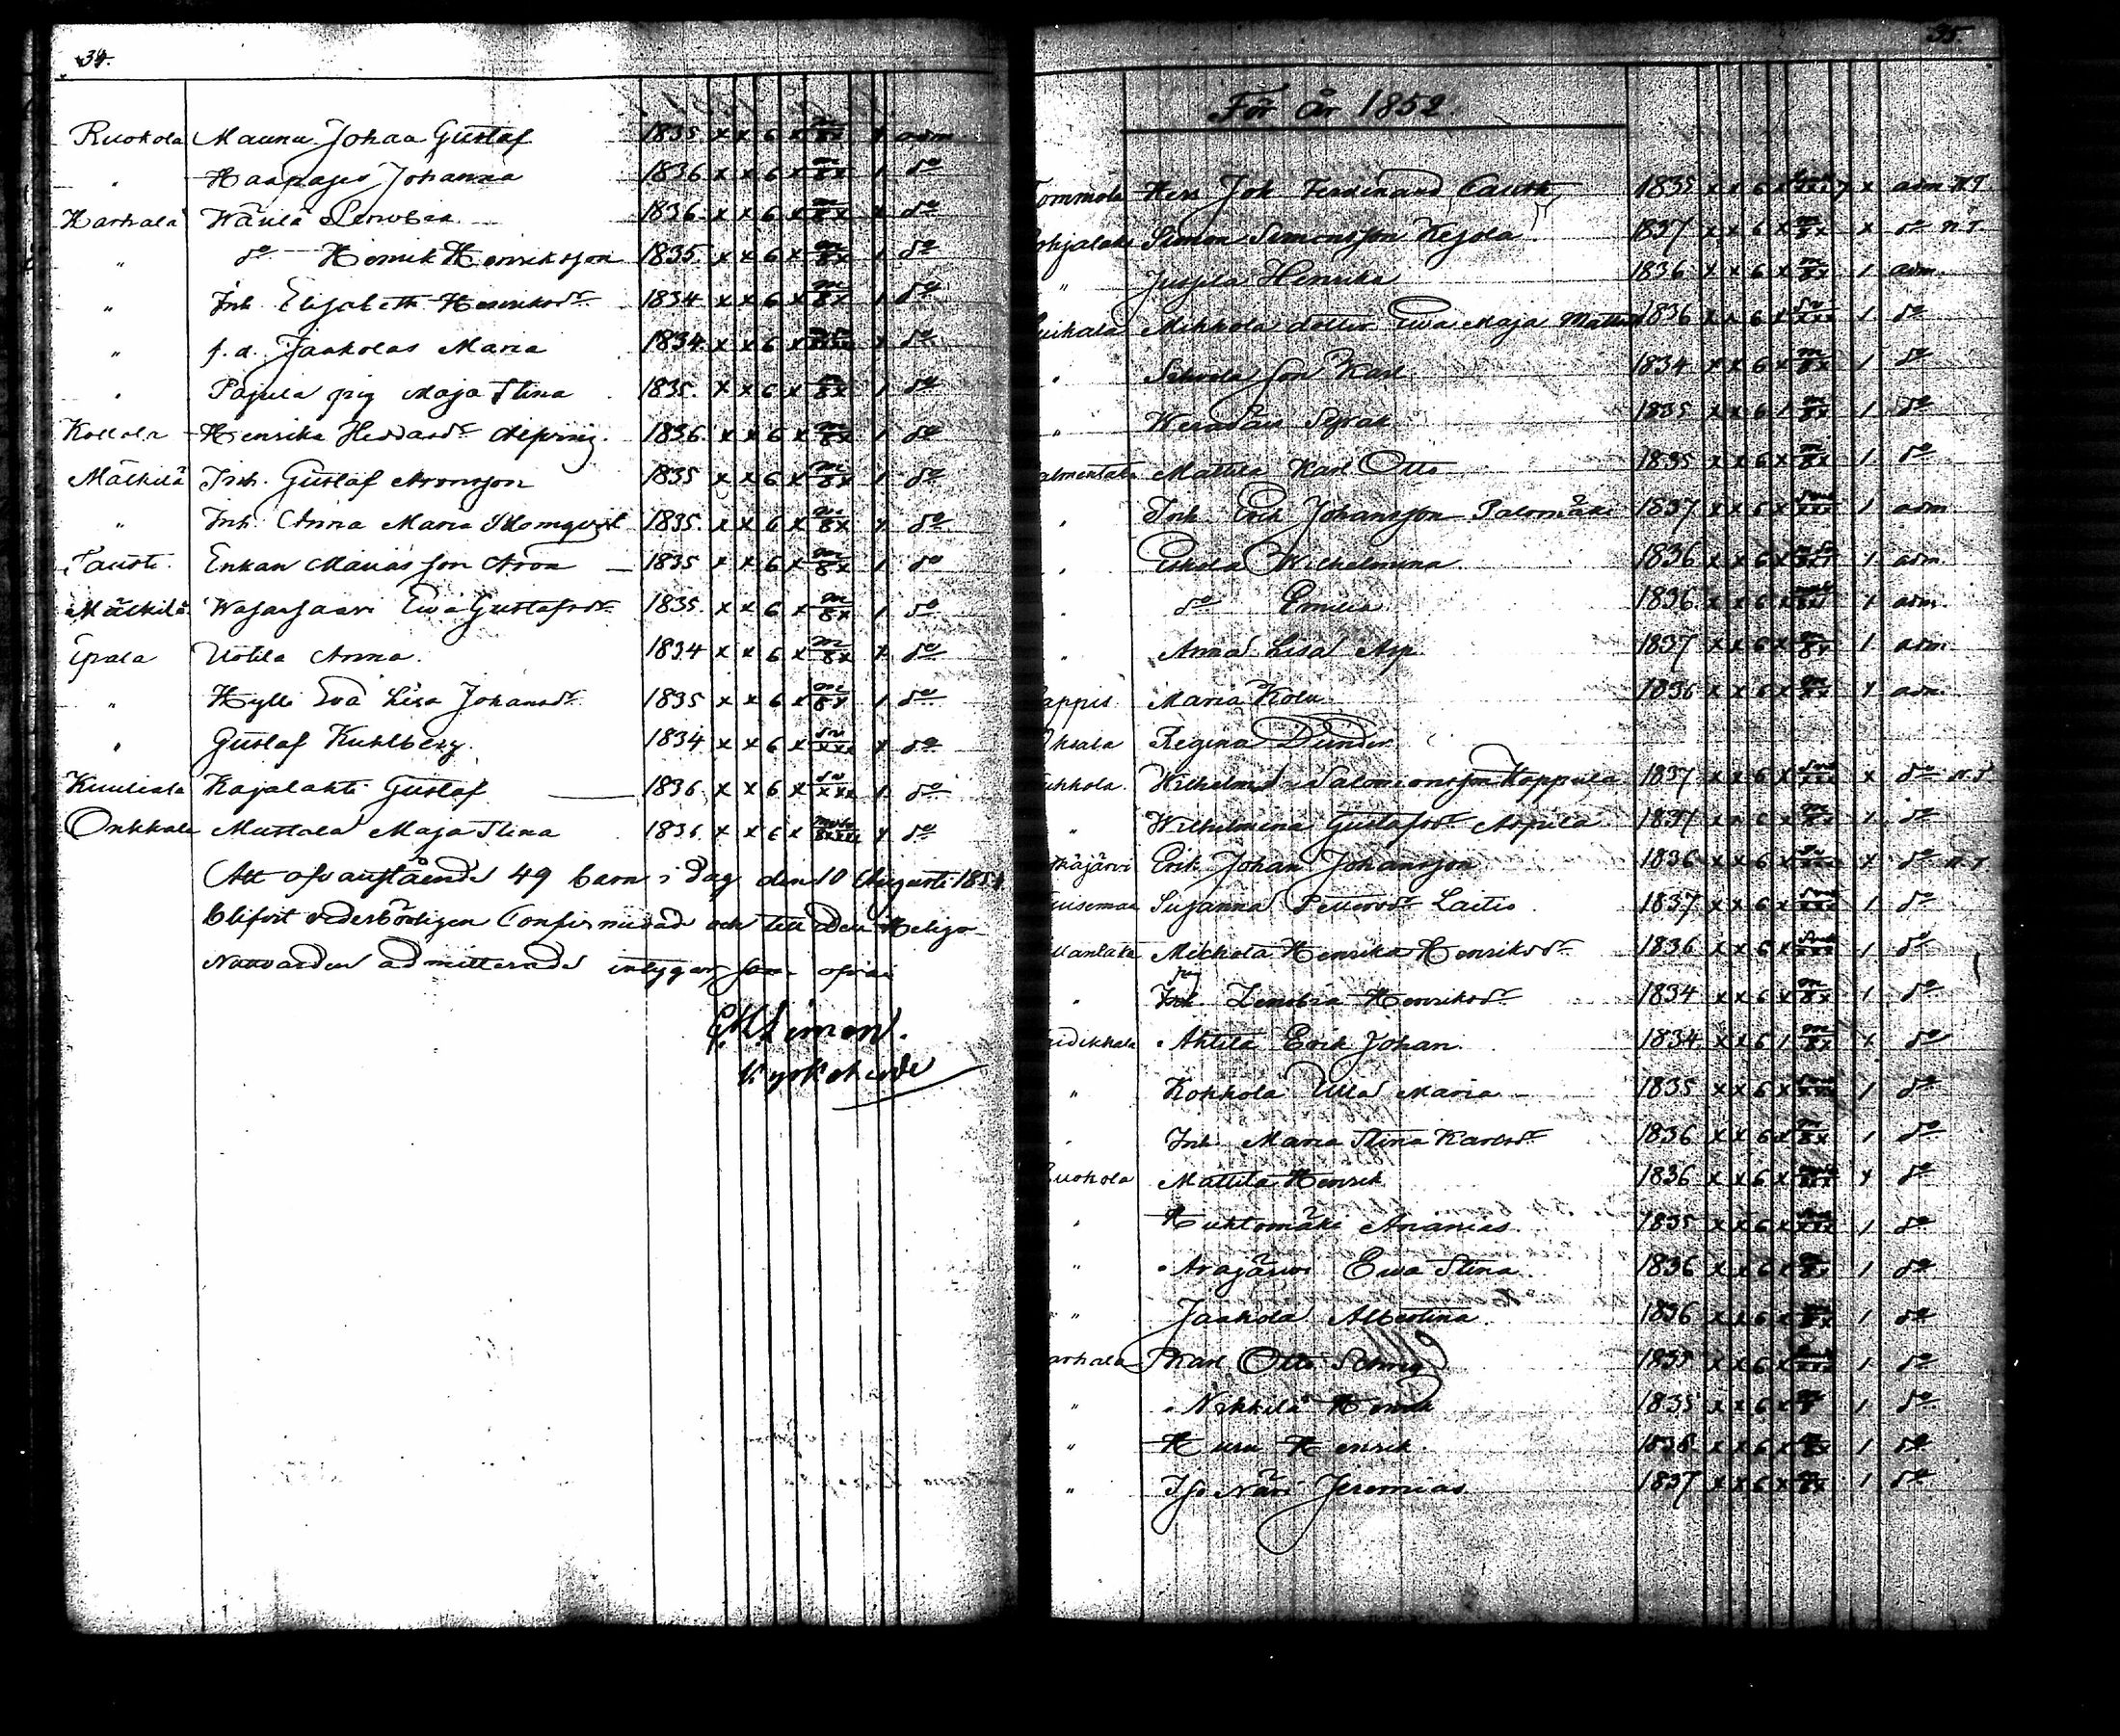 34.
Ruokola Maunu Johan Gustaf 1835 x x 6 x m 8x x adm
" Haapajis Johanna 1836 x x 6 x m 8x 1 do
Harhala Wäulä Zenobia 1836. x x 6 x m 8x x do
" do Henrik Henriksson 1835. x x 6 x m 8x 1 do
" Inh. Elisabeth Henriksdr 1834 x x 6 x m 8x 1 do
" f. d. Jaakolas Maria 1834. x x 6 x x do
" Pajula pig Maja Stina 1835. x x 6 x m 8x 1 do
Kollola Henrika Heddasdr 1836. x x 6 x m 8x 1 do
Mälkilä Inh. Gustaf Aronsson 1835 x x 6 x m 8x 1 do
" Inh. Anna Maria Blomqvist 1835. x x 6 x m 8x x do
Tausti. Enkan Marias son Aron 1835 x x 6 x m 8x 1 do
Mälkilä Wasarsaari Ewa Gustafsdr 1835. x x 6 x m 8x 1 do
Ipala Uotila Anna. 1834 x x 6 x m 8x x do
" Hylli Eva Lisa Johansdr 1835 x x 6 x m 8x 1 do
" Gustaf Kuhlberg. 1834 x x 6 x xxx x do
Kuuliala Kajalahti Gustaf 1836. x x 6 x xxx 1 do
Onkkala Mustala Maja Stina 1836. x x 6 x x do
Att ofvanstående 49 barn i dag den 10 Augusti
blifvit vederbörligen Confirmerade och till den Heliga
Nattvarden admitterade intygar
Kyrkoherde
35.
För År 1852.
Herr Joh Ferdinand 1835 x x 6 x x adm N.T.
Simon Simonsson Kejola 1837 x x 6 x m 8x x do N.T.
" Jussila Henrika 1836 x x 6 x m 8x 1 adm.
Mikkola dotter Ewa Maja 1836 x x 6 x xxx 1 do
" son Karl 1834 x x 6 x m 8x 1 do
" 1835 x x 6 1 m 8x 1 do
Mattila Karl Otto 1835 x x 6 x m 8x 1 do
" Inh. Erik Johansson Palomäki 1837 x x 6 x xxx 1 adm
" Eskola Wilhelmina 1836 x x 6 x 1 adm.
" do Emilia 1836. x x 6 x 1 adm.
" Anna Lisa Asp 1837 x x 6 x m 8x 1 adm
Maria Kolu 1836 x x 6 x m 8x x adm.
Regina Dunder
Wilhelm Salomonsson Koppula 1837 x x 6 x xxx x do N.T.
" Wilhelmina Gustafsdr Arpila 1837 x x 6 x m 8x 1 do
Erik Johan Johansson 1836 x x 6 x x do N.T.
Susanna Pettersdr Laitio 1837 x x 6 x xxx 1 do
Mikkola Henrika Henriksdr 1836 x x 6 x xxx 1 do
" pig Zenobia Henriksdr 1834 x x 6 x m 8x 1 do
Ahtila Erik Johan. 1834. x x 6 1 m 8x x do
" Kokkola Ulla Maria 1835 x x 6 x 1 do
" Inh. Maria Stina Karlsdr 1836 x x 6 x m 8x 1 do
Mattila Henrik 1836 x x 6 x x do
" Huhtomäki Ananias 1835 x x 6 x xxx 1 do
" Arajärvi Ewa Stina 1836 x x 6 x m 8x 1 do
" Jaakola Albertina 1836 x x 6 x m 8x 1 do
Karl Otto 1835 x x 6 x 1 do
" Nikkilä Henrik 1835 x x 6 x m 8 1 do
" Huru Henrik 1836. x x 6 x m 8x 1 do
" Iso Näri Jeremias 1837 x x 6 x m 8x 1 do